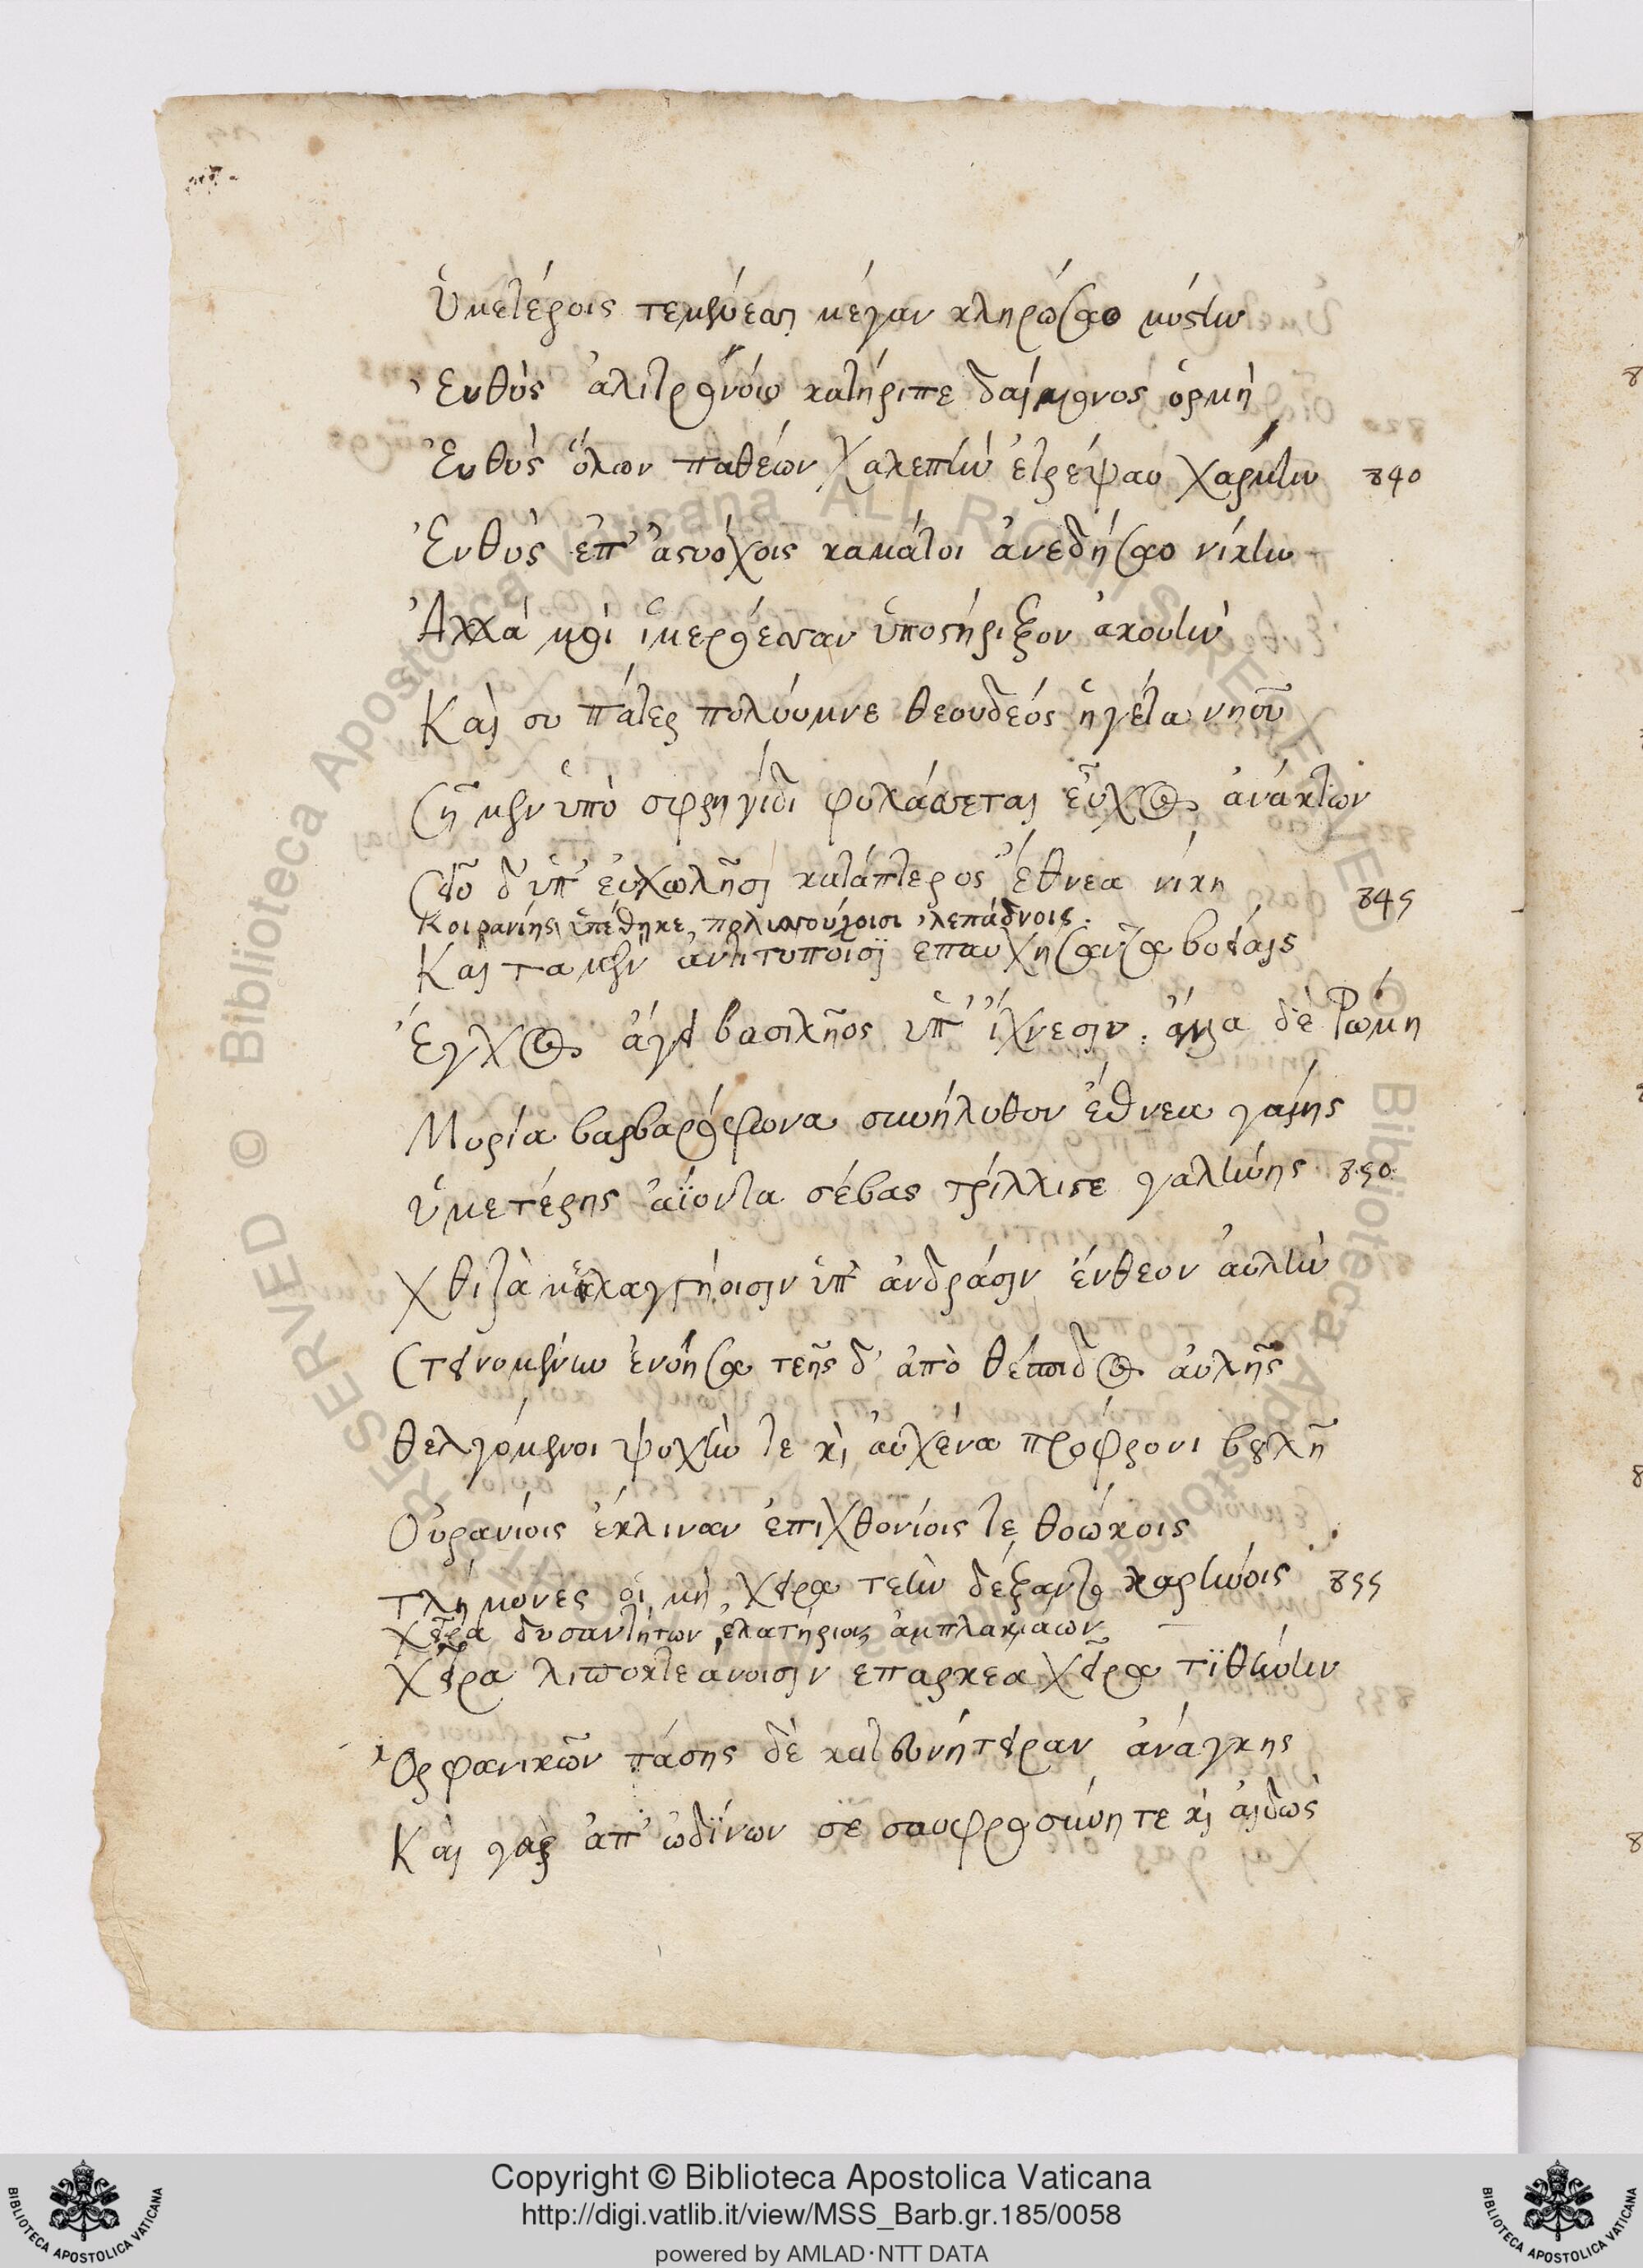 Ὑμετέροις τεμένεσσι μέγαν κληρώσαο μύστιν
Ἐνθὺς ἀλιτρονόῳ κατήριπε δαίμονος ὁρμὴ
Ἐνθὺς ὅλων παθέων χαλεπὴν ἐτρέψαο χάρμην 840
Ἐνθὺς ἐπ' ἀσυόχοις καμάτοι ἀνεδήσαο νίκην
Ἀλλά μοι ἱμερόεσσαν ὑποστήριξον ἀκουὴν
Καὶ συ πάτερ πολύυμνε θεουδέος ἡγέτα νηοῦ
Σῇ μὲν ὑπὸ σφρηγῖδι φυλάσσεται εὖχος ἀνάκτων
Σεῖο δ' ὑπ' εὐχωλῇσι κατάπτερος ἔθνεα νίκη 845
Κοιρανίης ὑπέθηκε πολισσούχοισι λεπάδνοις.
Καὶ τα μὲν ἀντιτύποισϊ επαυχήσαντα βοείαις
Ἔγχος ἄγει βασιλῆος ὑπ' ἴχνεσιν: ἅμα δὲ Ῥώμη
Μυρία βαρβαρόφωνα συνήλυθον ἔθνεα γαίης
Ὑμετέρης ἀΐοντα σέβας τρίλλιστε γαλήνης 850
Χθιζὰ κελαγστήρισιν ὑπ' ἀνδράσιν ἔνθεον αὐλὴν
Στεινομένην ἐνόησα τεῆς δ' ἀπὸ θέσπιδος αὐλῆς
Θελγόμενοι ψυχήν τε κὶ αὐχένα πρόφρονι βουλῇ
Οὐρανίοις ἔκλιναν ἐπιχθονίοις τε θοώκοις
τλήμονες οἱ μὴ χεῖρα τεὴν δέξαντο καρήνοις 855
χεῖρα δυσαντήτων ἐλατήριον ἀμπλακιάων
Χεῖρα λιποκτεάνοισιν επαρκέα χεῖρα τϊθήνην
Ὀρφανικῶν πάσης δὲ κατευνήτειραν ἀνάγκης
Καὶ γαρ ἀπ' ὠδίνων σε σαοφροσύνη τε κὶ αἰδὼς
Copyright © Biblioteca Apostolica Vaticana
http://digi.vatlib.it/view/MSS_Barb.gr.185/0058
powered by AMLAD·NTT DATA